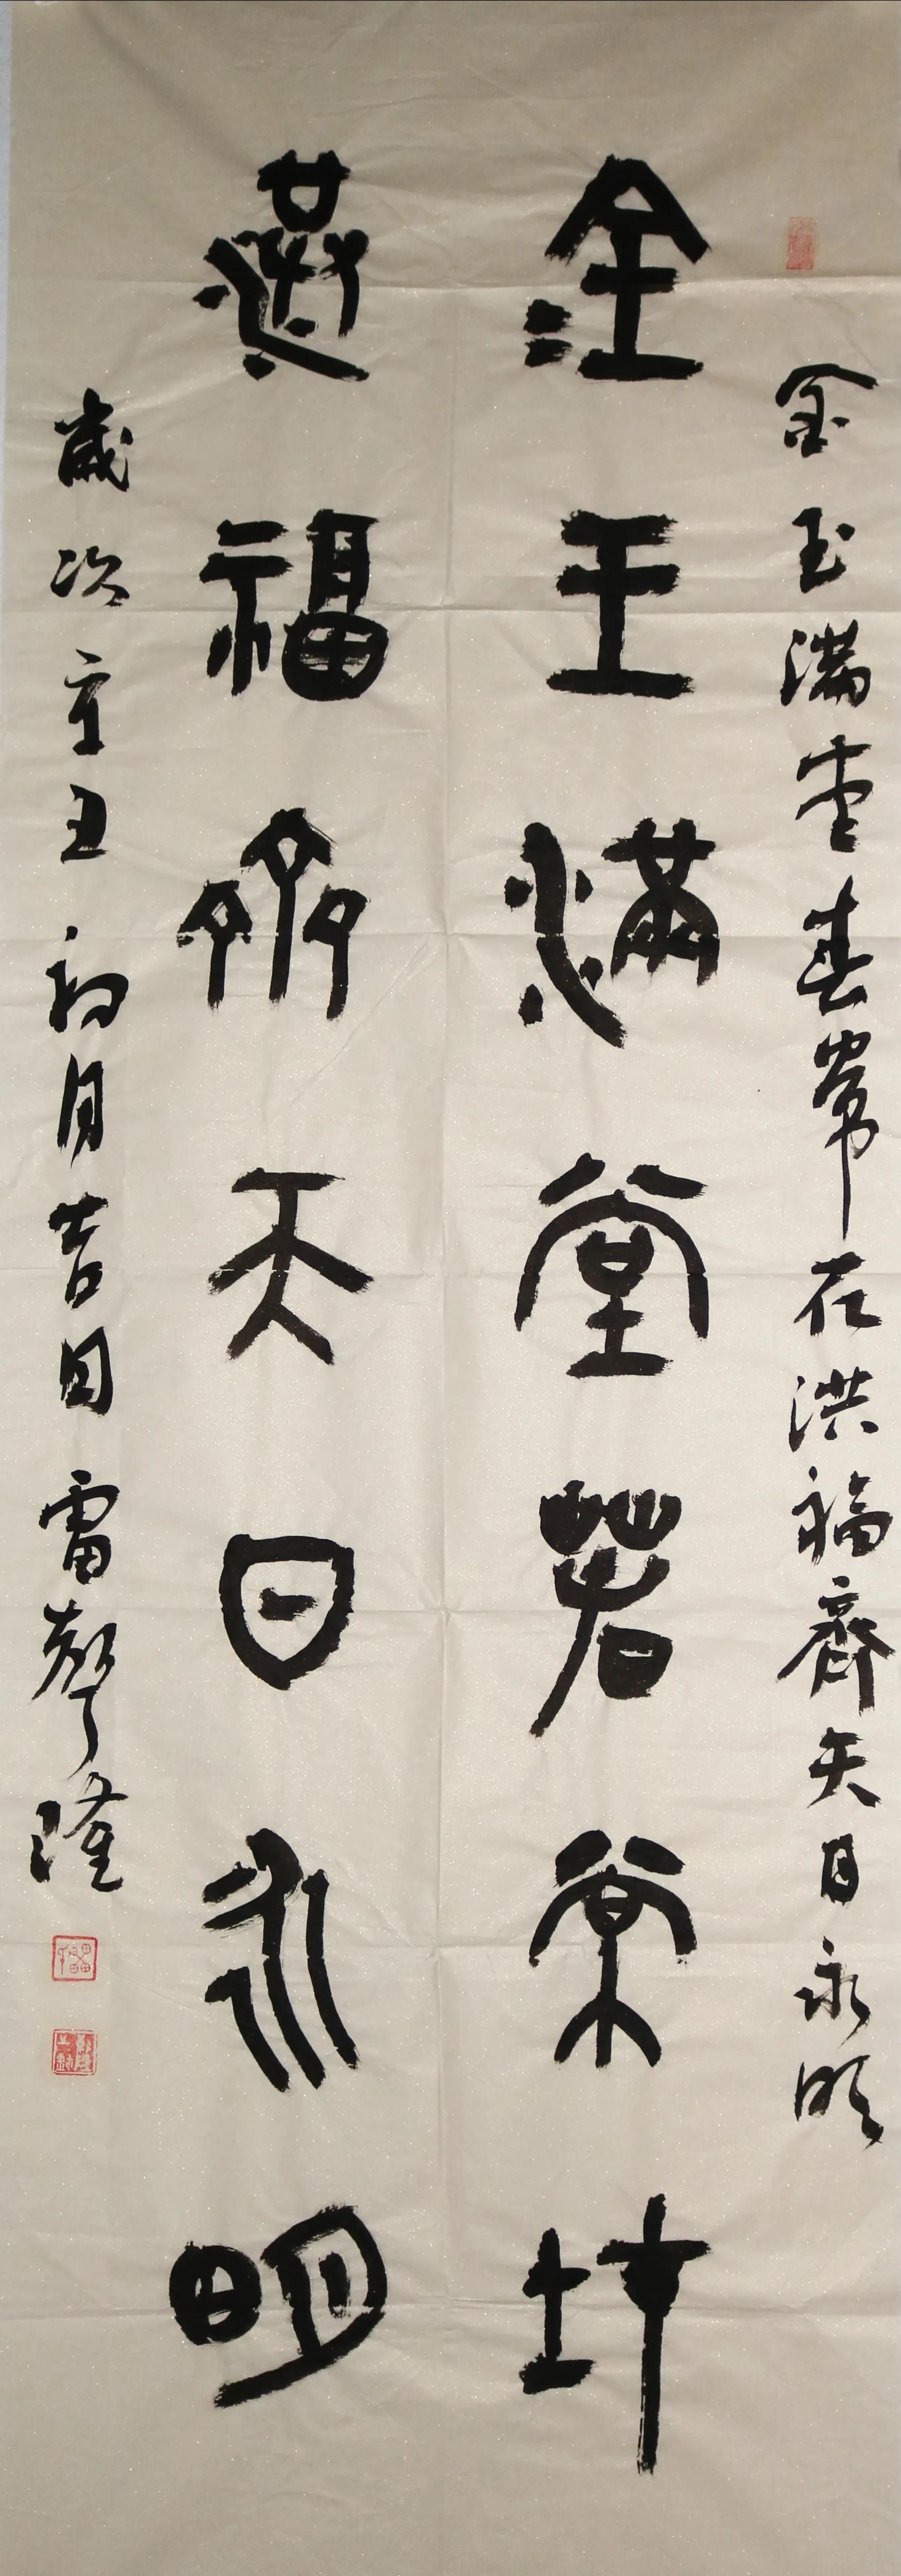 金玉滿堂春常在洪福齊天日永明
金玉滿堂春常在
洪福齊天日永明
歲次辛丑初月吉日雷聲隆